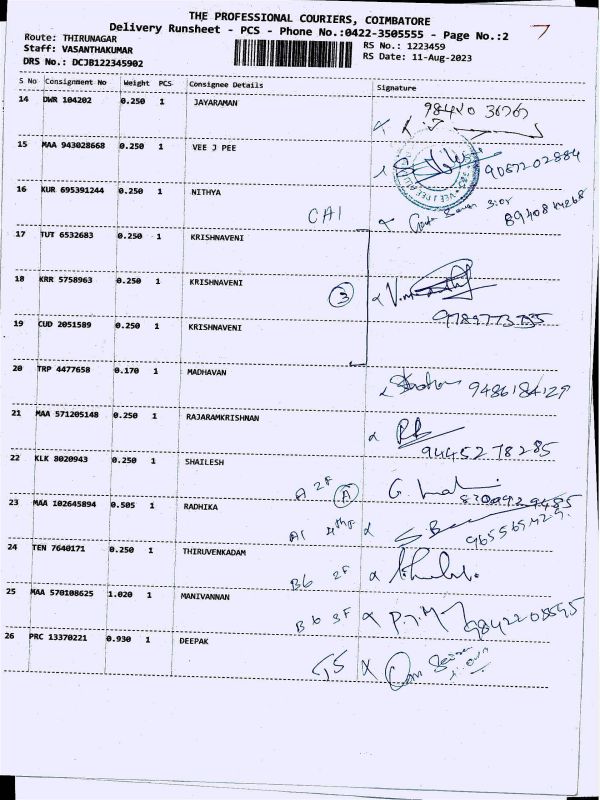 THE PROFESSIONAL COURIERS, COIMBATORE
Delivery Runsheet - PCS - Phone No.:0422-3505555 - Page No.:2
Route: THIRUNAGAR
Staff: VASANTHAKUMAR
DRS No.: DCJB122345902
RS No.: 1223459
RS Date: 11-Aug-2023
S No Consignment No Weight PCS Consignee Details Signature
14 DWR 104202 0.250 1 JAYARAMAN
15 MAA 943028668 0.250 1 VEE J PEE
9087202884
16 KUR 695391244 0.250 1 NITHYA
CAI
17 TUT 6532683 0.250 1 KRISHNAVENI
18 KRR 5758963 0.250 1 KRISHNAVENI
3
9789773735
19 CUD 2051589 0.250 1 KRISHNAVENI
20 TRP 4477658 0.170 1 MADHAVAN
9486184129
21 MAA 571205148 0.250 1 RAJARAMKRISHNAN
9445278285
22 KLK 8020943 0.250 1 SHAILESH
A 2F A
23 MAA 102645894 0.505 1 RADHIKA
A1
24 TEN 7640171 0.250 1 THIRUVENKADAM
B6 2F
25 MAA 570108625 1.020 1 MANIVANNAN
B6 3F
26 PRC 13370221 0.930 1 DEEPAK